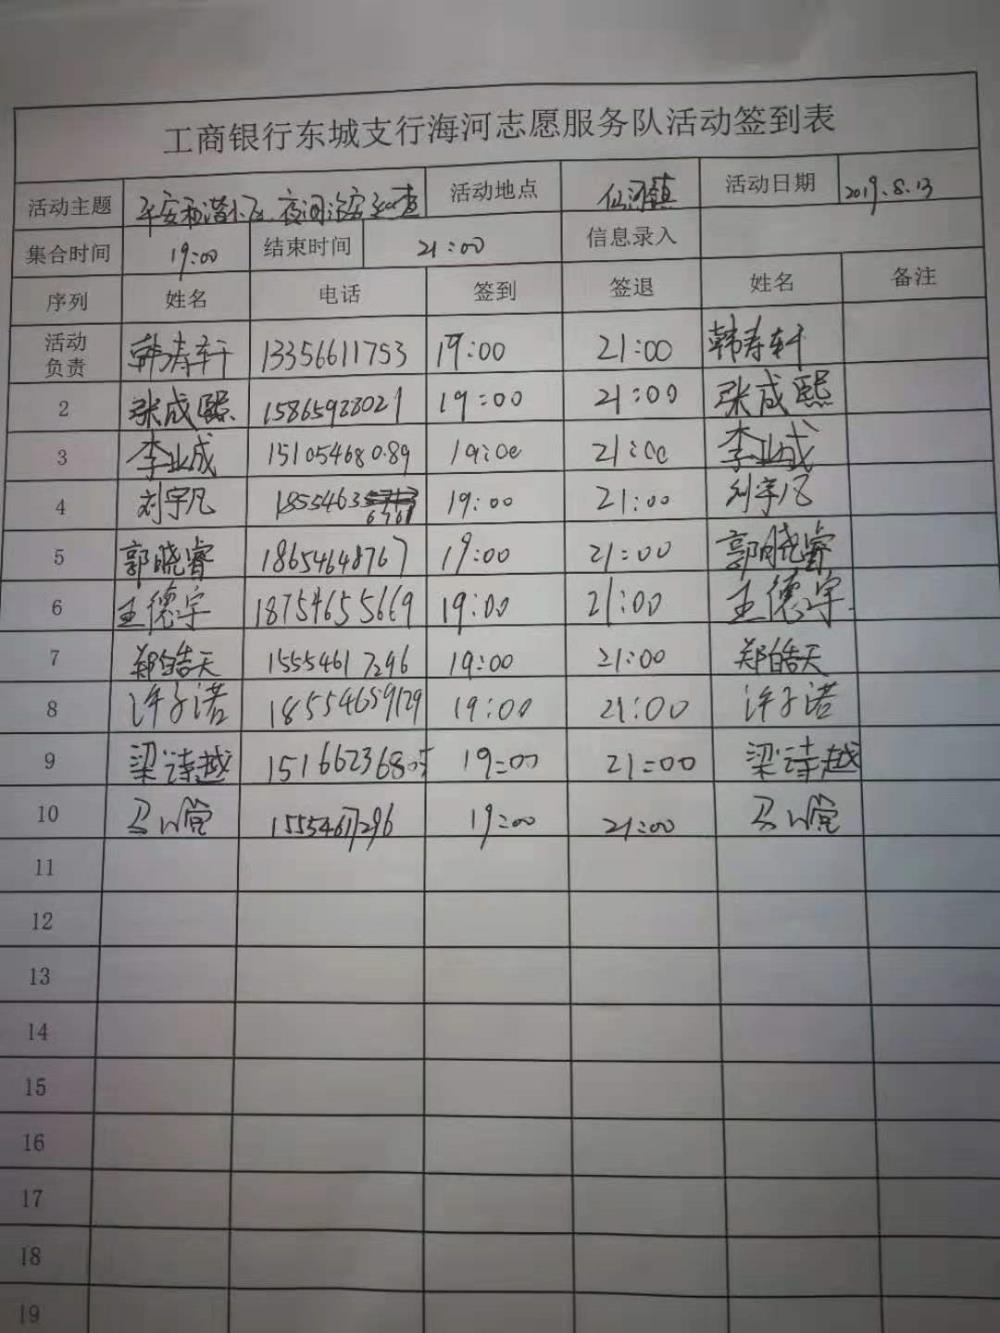 工商银行东城支行海河志愿服务队活动签到表
活动主题 平安和谐小区、夜间治安巡查 活动地点 仙河镇 活动日期 2019.8.13
集合时间 19:00 结束时间 21:00 信息录入
序列 姓名 电话 签到 签退 姓名 备注
活动
负责 韩寿轩 13356611753 19:00 21:00 韩寿轩
2 张成熙 15865928021 19:00 21:00 张成熙
3 李业成 15105468089 19:00 21:00 李业成
4 刘宇凡 1855463 19:00 21:00 刘宇凡
5 郭晓睿 18654648767 19:00 21:00 郭晓睿
6 王德宇 18754655669 19:00 21:00 王德宇
7 郑皓天 15554617296 19:00 21:00 郑皓天
8 许子诺 18554659129 19:00 21:00 许子诺
9 梁诗越 15166236805 19:00 21:00 梁诗越
10 15554617296 19:00 21:00
11
12
13
14
15
16
17
18
19